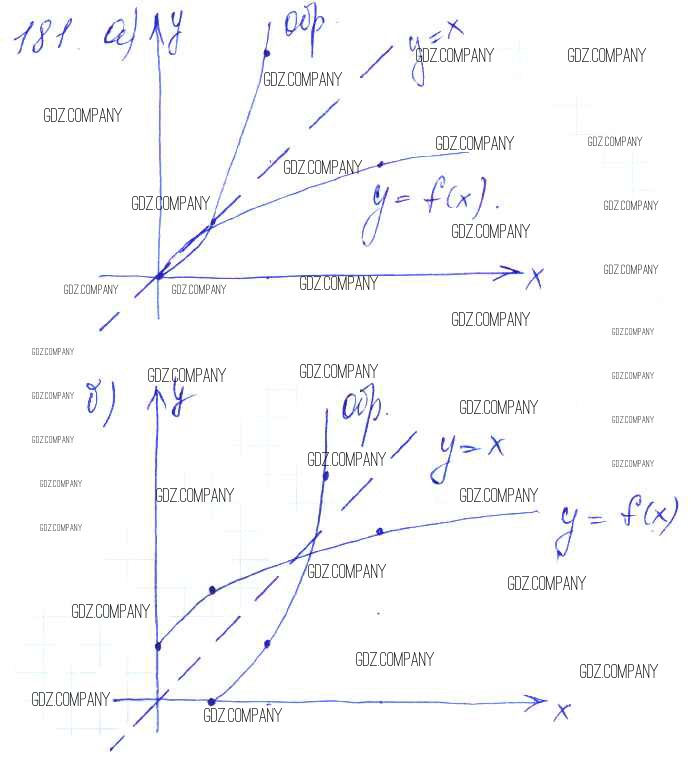 181. а) y обр. y = x
GDZ.COMPANY GDZ.COMPANY
GDZ.COMPANY
GDZ.COMPANY
GDZ.COMPANY GDZ.COMPANY
GDZ.COMPANY
GDZ.COMPANY y = f(x). GDZ.COMPANY
GDZ.COMPANY
GDZ.COMPANY
x
GDZ.COMPANY GDZ.COMPANY GDZ.COMPANY
GDZ.COMPANY
GDZ.COMPANY
GDZ.COMPANY
GDZ.COMPANY GDZ.COMPANY GDZ.COMPANY
б) y обр.
GDZ.COMPANY GDZ.COMPANY
GDZ.COMPANY
GDZ.COMPANY y = x
GDZ.COMPANY GDZ.COMPANY
GDZ.COMPANY GDZ.COMPANY GDZ.COMPANY
GDZ.COMPANY y = f(x)
GDZ.COMPANY GDZ.COMPANY
GDZ.COMPANY
GDZ.COMPANY GDZ.COMPANY
GDZ.COMPANY x
GDZ.COMPANY